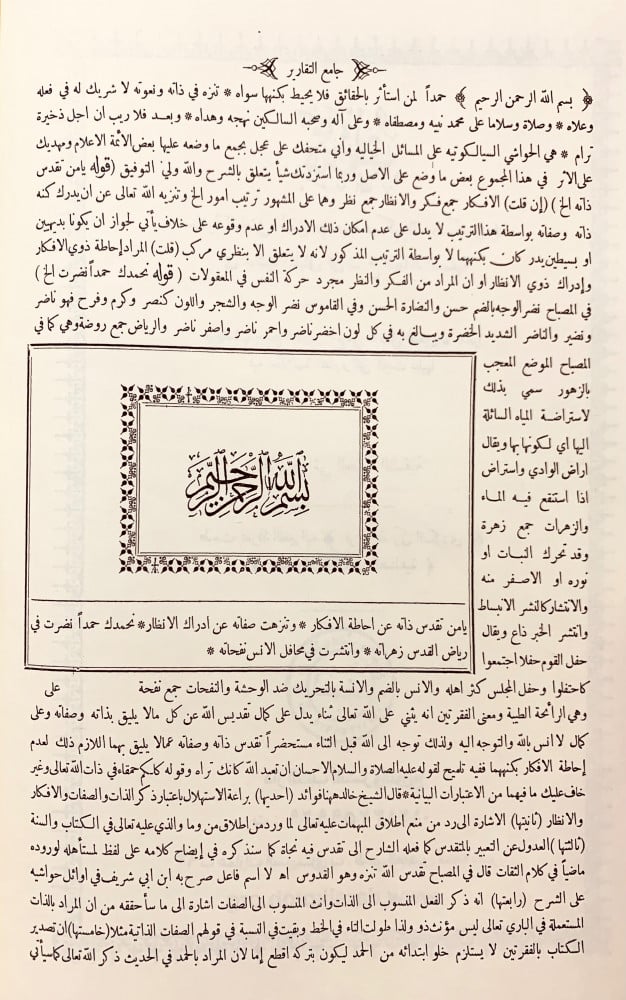 جامع التقارير
﴿ بسم الله الرحمن الرحيم ﴾ حمداً لمن استأثر بالحقائق فلا يحيط بكنهها سواه * تنزه في ذاته ونعوته لا شريك له في فعله
وعلاه * وصلاة وسلاما على محمد نبيه ومصطفاه * وعلى آله وصحبه السالكين نهجه وهداه * وبعد فلا ريب ان اجل ذخيرة
ترام * هي الحواشي السيالكوتيه على المسائل الخياليه وأني متحفك على عجل بجمع ما وضعه عليها بعض الأئمة الاعلام ومهديك
على الاثر في هذا المجموع بعض ما وضع على الاصل وربما استزدتك شيأ يتعلق بالشرح والله ولي التوفيق (قوله يامن تقدس
ذاته الخ) (إن قلت) الافكار جمع فكر والانظار جمع نظر وهما على المشهور ترتيب امور الخ وتنزيه الله تعالى عن ان يدرك كنه
ذاته وصفاته بواسطة هذا الترتيب لا يدل على عدم امكان ذلك الادراك او عدم وقوعه على خلاف يأتي لجواز ان يكونا بديهيين
او بسيطين يدركان بكنههما لا بواسطة الترتيب المذكور لانه لا يتعلق الا بنظري مركب (قلت) المراد إحاطة ذوي الافكار
وإدراك ذوي الانظار او ان المراد من الفكر والنظر مجرد حركة النفس في المعقولات (قوله نحمدك حمداً نضرت الخ)
في المصباح نضر الوجه بالضم حسن والنضارة الحسن وفي القاموس نضر الوجه والشجر واللون كنصر وكرم وفرح فهو ناضر
ونضير والناضر الشديد الخضرة ويبالغ به في كل لون اخضر ناضر واحمر ناضر واصفر ناضر والرياض جمع روضة وهي كما في
المصباح الموضع المعجب
بالزهور سمي بذلك
لاستراضة المياه السائلة
اليها اي لكونها بها ويقال
اراض الوادي واستراض
اذا استنقع فيه الماء
والزهرات جمع زهرة
وقد تحرك النبات او
نوره او الاصفر منه
والانتشار كالنشر الانبساط
وانتشر الخبر ذاع ويقال
حفل القوم حفلا اجتمعوا
بسم الله الرحمن الرحيم
يامن تقدس ذاته عن احاطة الافكار * وتنزهت صفاته عن ادراك الانظار * نحمدك حمداً نضرت في
رياض القدس زهراته * وانتشرت في محافل الانس نفحاته *
كاحتفلوا وحفل المجلس كثر اهله والانس بالضم والانسة بالتحريك ضد الوحشة والنفحات جمع نفحة على
وهي الرائحة الطيبة ومعنى الفقرتين انه يثني على الله تعالى ثناء يدل على كمال تقديس الله عن كل مالا يليق بذاته وصفاته وعلى
كمال لا انس بالله والتوجه اليه ولذلك توجه الى الله قبل الثناء مستحضراً تقدس ذاته وصفاته عمالا يليق بهما اللازم ذلك لعدم
إحاطة الافكار بكنههما ففيه تلميح لقوله عليه الصلاة والسلام الاحسان ان تعبد الله كانك تراه وقوله كلكم حمقاء في ذات الله تعالى وغير
خاف عليك ما فيهما من الاعتبارات البيانية * قال الشيخ خالد ههنا فوائد (احديها) براعة الاستهلال باعتبار ذكر الذات والصفات والافكار
والانظار (ثانيتها) الاشارة الى رد من منع اطلاق المبهمات عليه تعالى لما ورد من اطلاق من وما والذي عليه تعالى في الكتاب والسنة
(ثالثتها) العدول عن التعبير بالمتقدس كما فعله الشارح الى تقدس فيه نجاة كما سنذكره في إيضاح كلامه على لفظ لمستأهله لوروده
ماضياً في كلام الثقات قال في المصباح تقدس الله تنزه وهو القدوس اه لا اسم فاعل صرح به ابن ابي شريف في اوائل حواشيه
على الشرح (رابعتها) انه ذكر الفعل المنسوب الى الذات وانث المنسوب الى الصفات اشارة الى ما سأحققه من ان المراد بالذات
المستعملة في الباري تعالى ليس مؤنث ذو ولذا طولت التاء في الخط وبقيت في النسبة في قولهم الصفات الذاتية مثلا (خامستها) ان تصدير
الكتاب بالفقرتين لا يستلزم خلو ابتدائه من الحمد ليكون بتركه اقطع إما لان المراد بالحمد في الحديث ذكر الله تعالى كما سيأتي